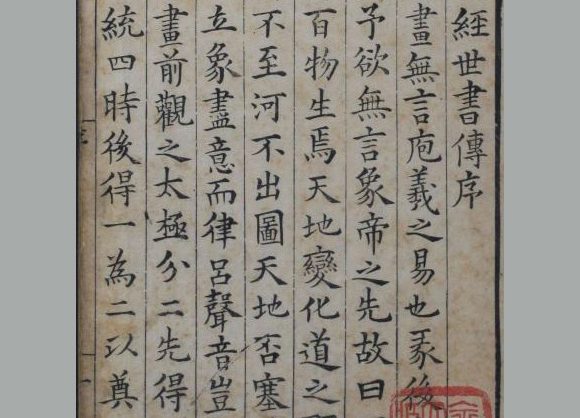 經世書傳序
畫無言庖羲之易也彖後
予欲無言象帝之先故曰
百物生焉天地變化道之
不至河不出圖天地否塞
立象盡意而律呂聲音豈
畫前觀之太極分二先得
統四時後得一為二以奠